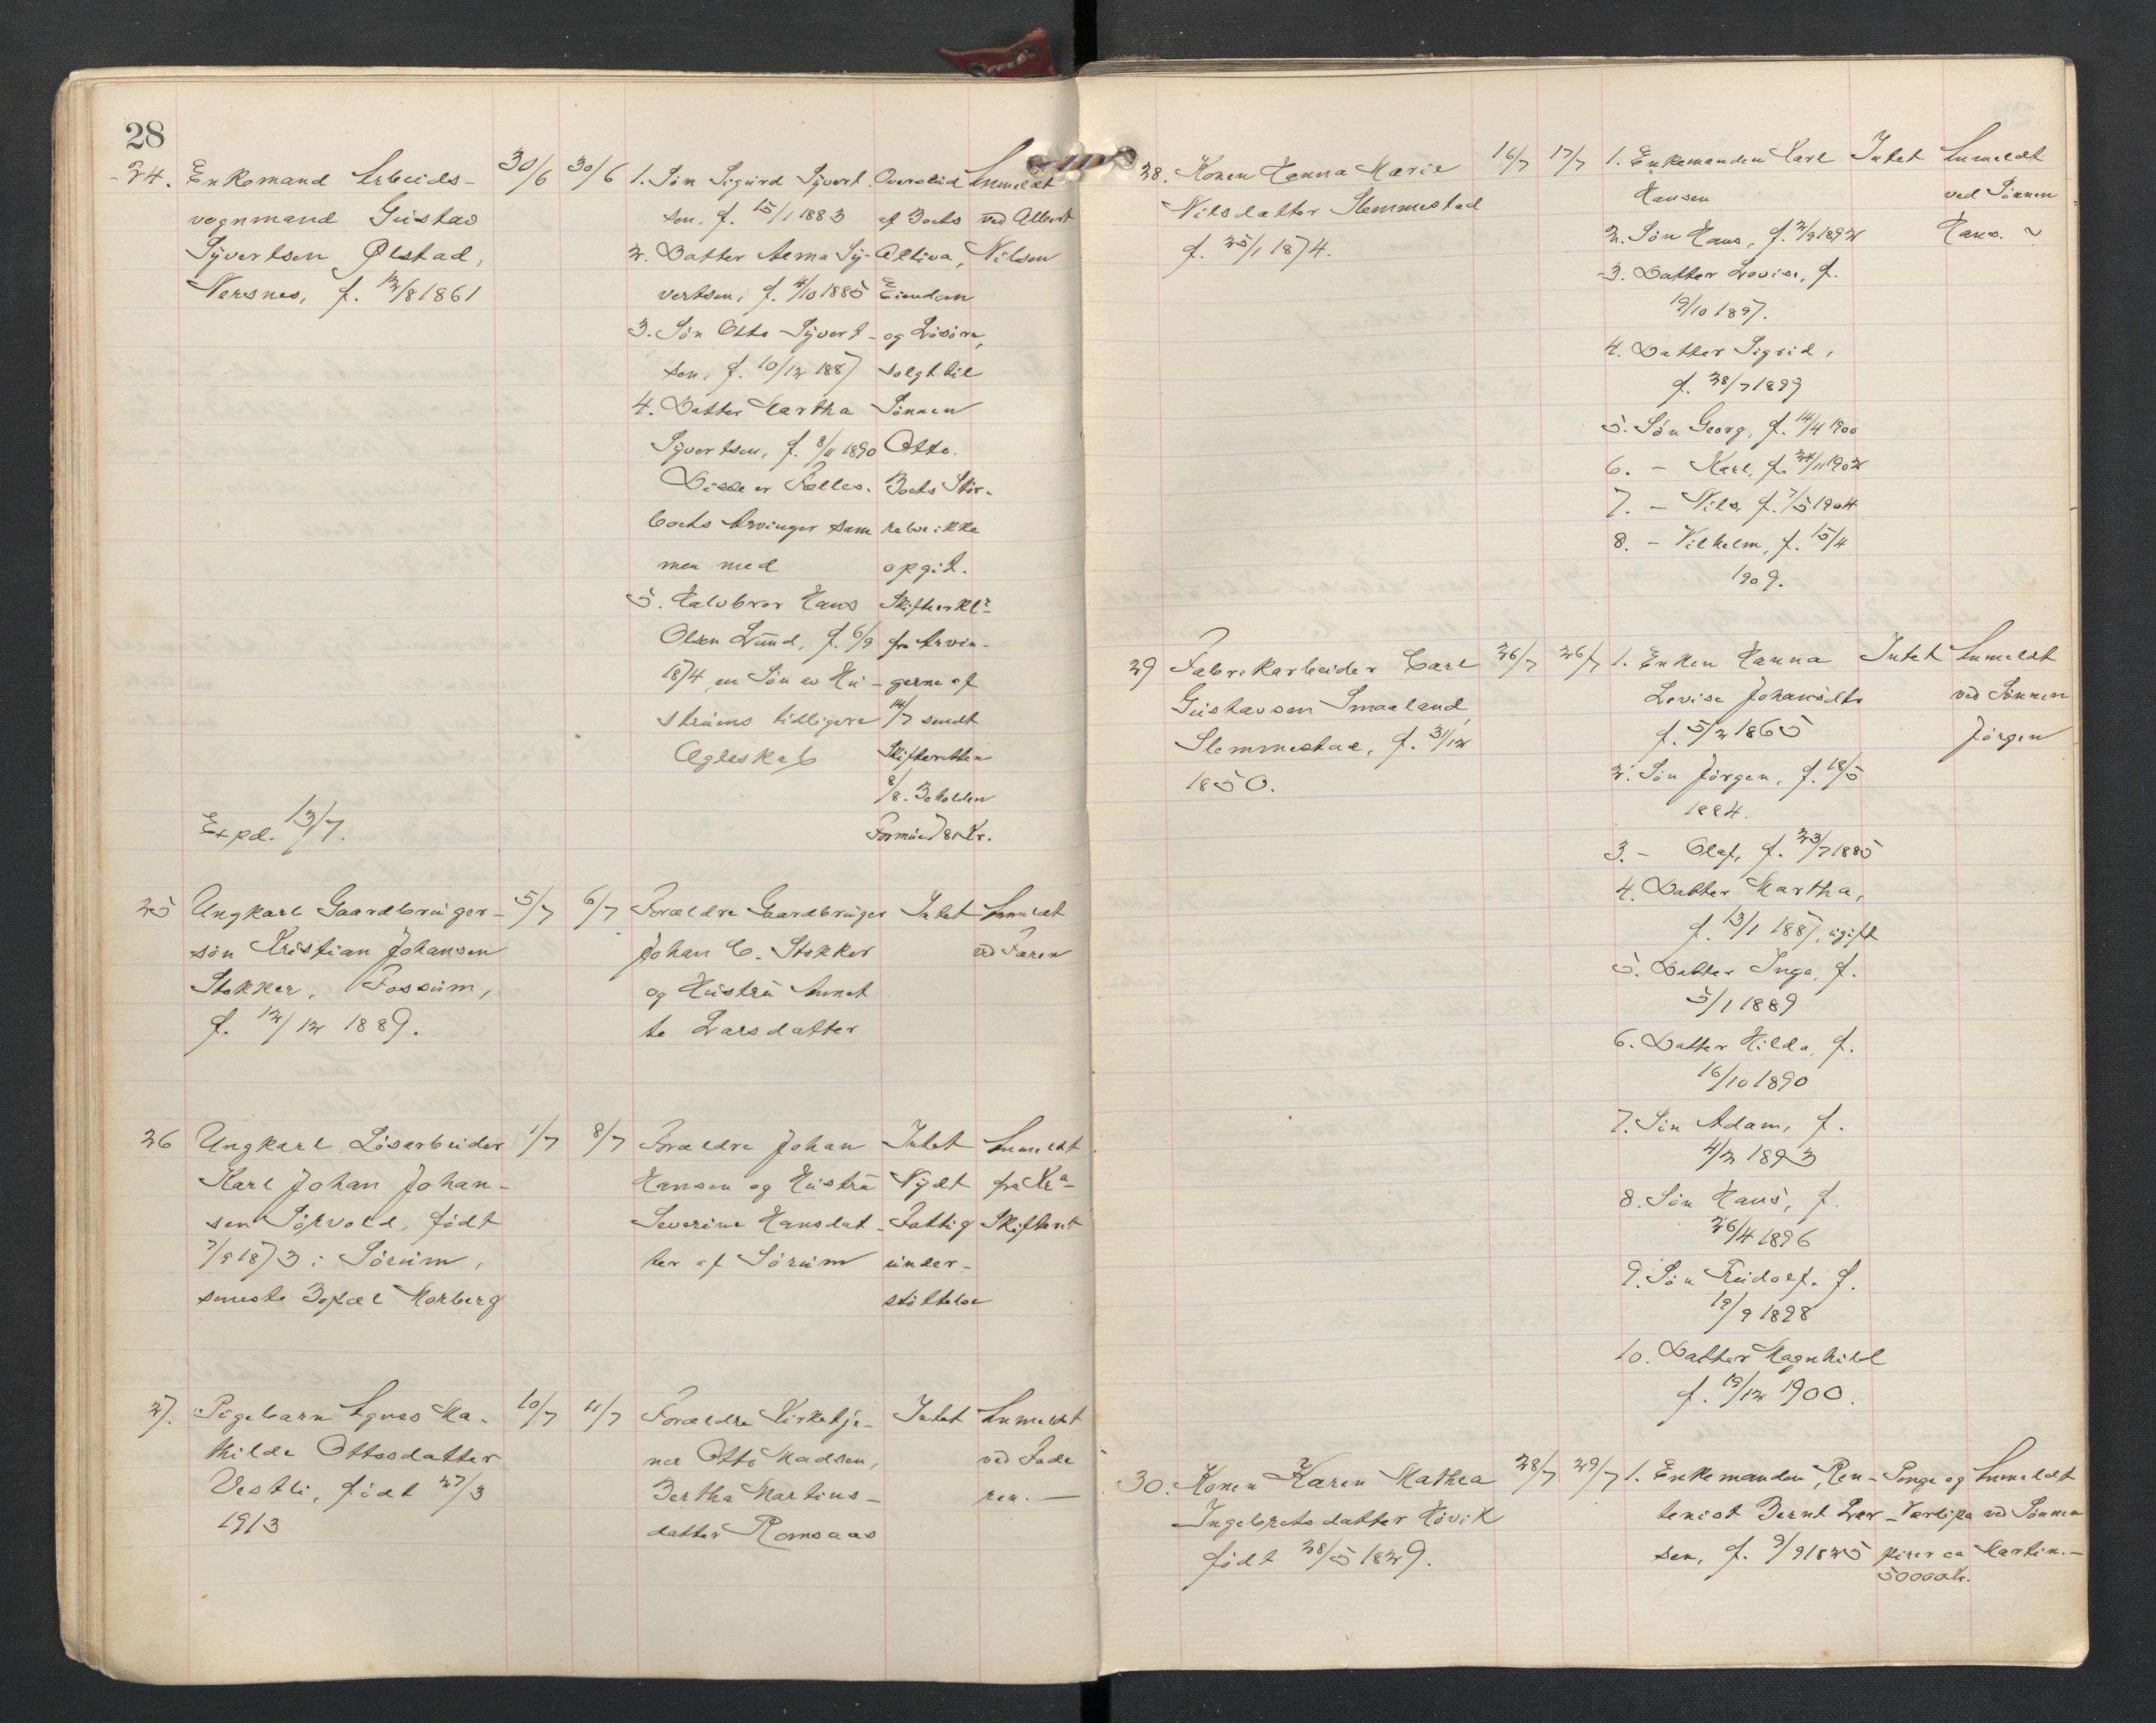 28
24. Enkemand Arbeids-
vognmand Gustav
Syvertsen Ølstad,
Nersnes, f. 12/8 1861
30/6 30/6
1. Søn Sigurd Syvert-
sen, f. 15/1 1883
2. Datter Anna Sy-
vertsen, f. 4/10 1885
3. Søn Otto Syvert-
sen, f. 10/12 1887
4. Datter Martha
Syvertsen, f. 8/11 1890
Disse er Fælles-
boets Arvinger sam
men med
5. Halvbror Hans
Olsen Lund, f. 6/9
1874, en Søn av Hu-
struens tidligere
Ægteskab
Overskud
af Boets
Aktiva,
Eiendom
og Løsøre,
solgt til
Sønnen
Otto.
Boets Stør-
relse ikke
opgit.
Skifteerkl.
fra Arvin-
gerne af
14/7 sendt
Skifteretten
8/8. Beholden
Formue 781 Kr.
Anmeldt
ved Albert
Nilsen
Expd. 13/7.
25 Ungkarl Gaardbruger-
søn Kristian Johansen
Stokker, Fossum,
f. 12/12 1889.
5/7 6/7
Forældre Gaardbruger
Johan C. Stokker
og Hustru Annet
te Larsdatter
Intet
Anmeldt
ved Faren
26 Ungkarl Løsarbeider
Karl Johan Johan-
sen Sørvold, født
7/9 1873 i Sørum,
seneste Bopæl Morberg
1/7 8/7
Forældre Johan
Hansen og Hustru
Severine Hansdat-
ter af Sørum
Intet
Nydt
Fattig
under-
støttelse
Anmeldt
fra Kra
Skifteret
27. Pigebarn Agnes Ma-
thilde Ottosdatter
Vestli, født 27/3
1913
10/7 11/7
Forældre Kirketje-
ner Otto Madsen,
Bertha Martins-
datter Romsaas
Intet
Anmeldt
ved Fade
ren. —
28. Konen Hanna Marie
Nilsdatter Slemmestad
f. 25/1 1874.
16/7 17/7
1. Enkemanden Karl
Hansen
2. Søn Hans, f. 2/9 1892
3. Datter Lovise, f.
19/10 1897.
4. Datter Sigrid,
f. 28/7 1899
5. Søn Georg, f. 14/4 1900
6. — Karl, f. 24/11 1902
7. — Nils, f. 7/5 1904
8. — Vilhelm, f. 15/4
1909.
Intet
Anmeldt
ved Sønnen
Hans.
29 Fabrikarbeider Carl
Gustavsen Smaaland,
Slemmestad, f. 31/12
1850.
26/7 26/7
1. Enken Hanna
Lovise Johansdtr
f. 5/2 1865
2. Søn Jørgen, f. 18/5
1884.
3. — Olaf, f. 23/7 1885
4. Datter Martha,
f. 13/1 1887, ugift
5. Datter Inga, f.
5/1 1889
6. Datter Hilda, f.
16/10 1890
7. Søn Adam, f.
4/2 1893
8. Søn Hans, f.
26/4 1896
9. Søn Rudolf. f.
19/9 1898
10. Datter Magnhild
f. 19/12 1900.
Intet
Anmeldt
ved Sønnen
Jørgen
30. Konen Karen Mathea
Ingebretsdatter Høvik
født 28/5 1829.
28/7 29/7
1. Enkemanden, Ren-
tenist Bernt Lar-
sen, f. 9/9 1825
Penge og
Værdipa
pirer ca
50000 Kr.
Anmeldt
ved Sønnen
Martin. —